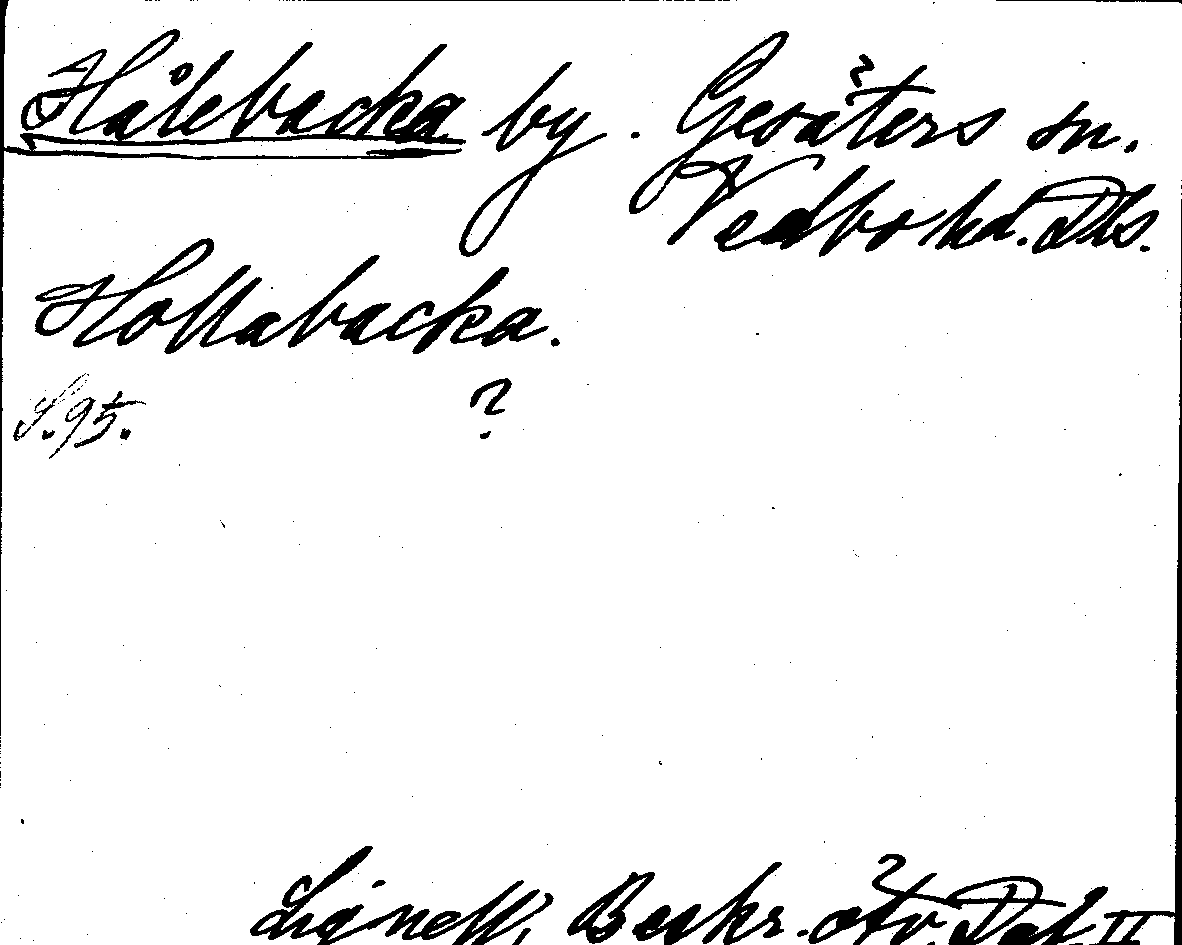 Hålebacka by. Gesäters sn.
Vedbo hd. Dls.
Hollabacka.
S. 95. ?
Lignell, Beskr. öfv. Dal. II